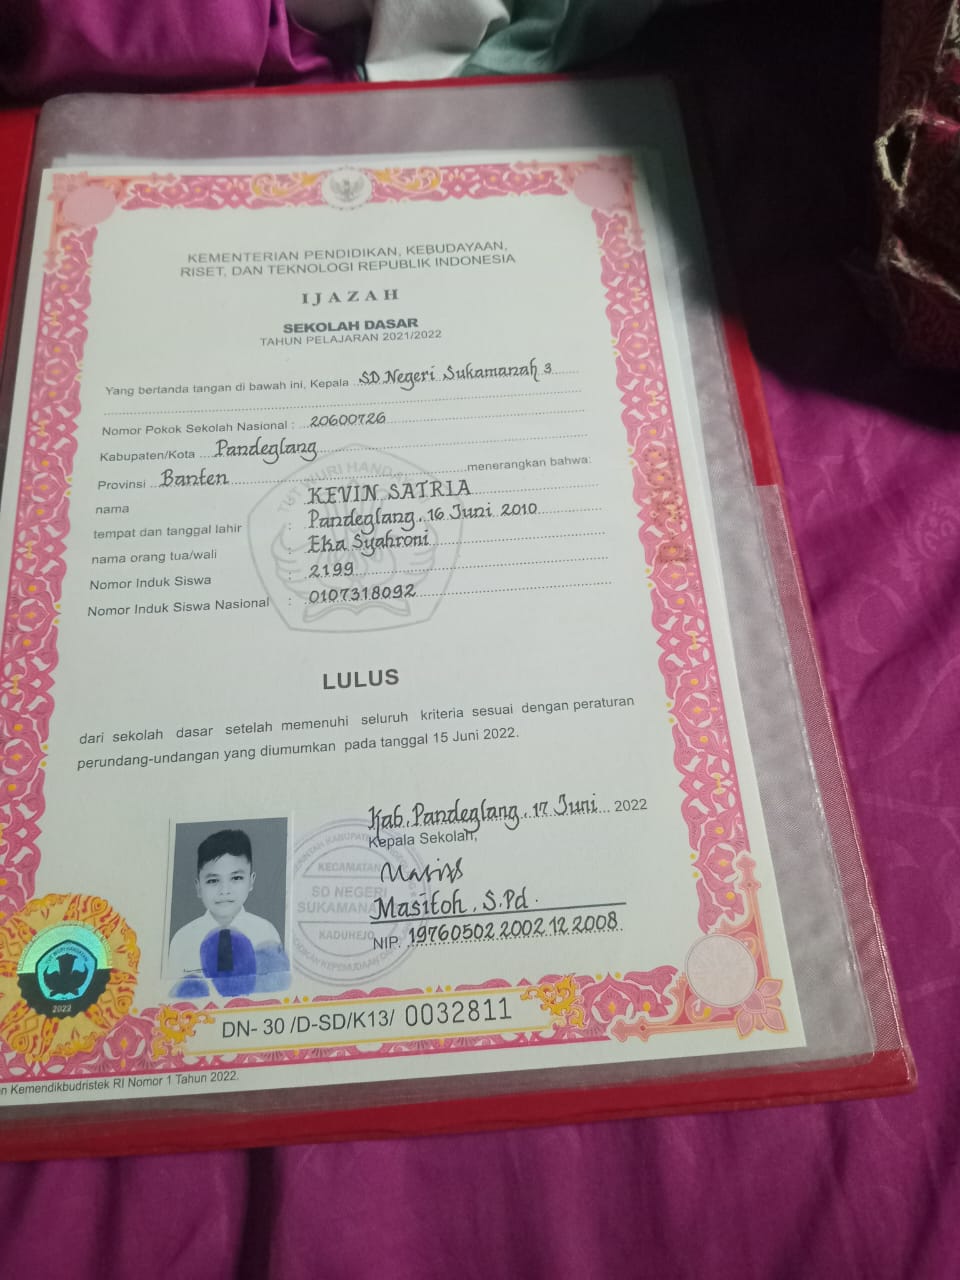 KEMENTERIAN PENDIDIKAN, KEBUDAYAAN,
RISET, DAN TEKNOLOGI REPUBLIK INDONESIA
IJAZAH
SEKOLAH DASAR
TAHUN PELAJARAN 2021/2022
Yang bertanda tangan di bawah ini, Kepala SD Negeri Sukamanah 3
Nomor Pokok Sekolah Nasional : 20600726
Kabupaten/Kota Pandeglang
Provinsi Banten menerangkan bahwa:
nama : KEVIN SATRIA
tempat dan tanggal lahir : Pandeglang, 16 Juni 2010
nama orang tua/wali : Eka Syahroni
Nomor Induk Siswa : 2199
Nomor Induk Siswa Nasional : 0107318092
TUT WURI HANDAYANI
LULUS
dari sekolah dasar setelah memenuhi seluruh kriteria sesuai dengan peraturan
perundang-undangan yang diumumkan pada tanggal 15 Juni 2022.
Kab. Pandeglang, 17 Juni 2022
Kepala Sekolah,
Masitoh, S.Pd.
NIP. 19760502 2002 12 2008
KECAMATAN
SD NEGERI
KADUHEJO
TUT WURI HANDAYANI
2022
DN- 30 /D-SD/K13/ 0032811
Kemendikbudristek RI Nomor 1 Tahun 2022.